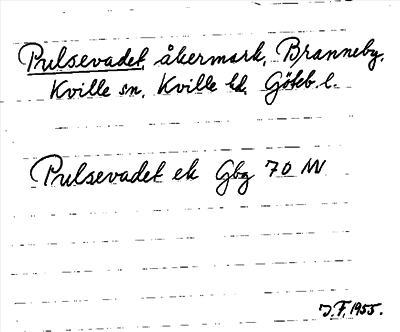 Pulsevadet, åkermark, Branneby,
Kville sn, Kville hd, Göteb. l.
Pulsevadet ek Gbg 70 NV
J.F. 1955.